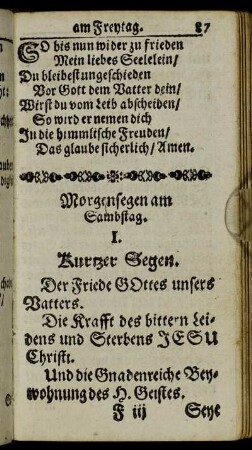 am Freytag. 87
SO bis nun wider zu frieden
Mein liebes Seelelein/
Du bleibest ungeschieden
Vor Gott dem Vatter dein/
Wirst du vom Leib abscheiden/
So wird er nemen dich
In die himmlische Freuden/
Das glaube sicherlich/ Amen.
Morgensegen am
Sambstag.
I.
Kurtzer Segen.
Der Friede GOttes unsers
Vatters.
Die Krafft des bittern Lei-
dens und Sterbens JESU
Christi.
Und die Gnadenreiche Bey-
wohnung des H. Geistes.
F iij Seye